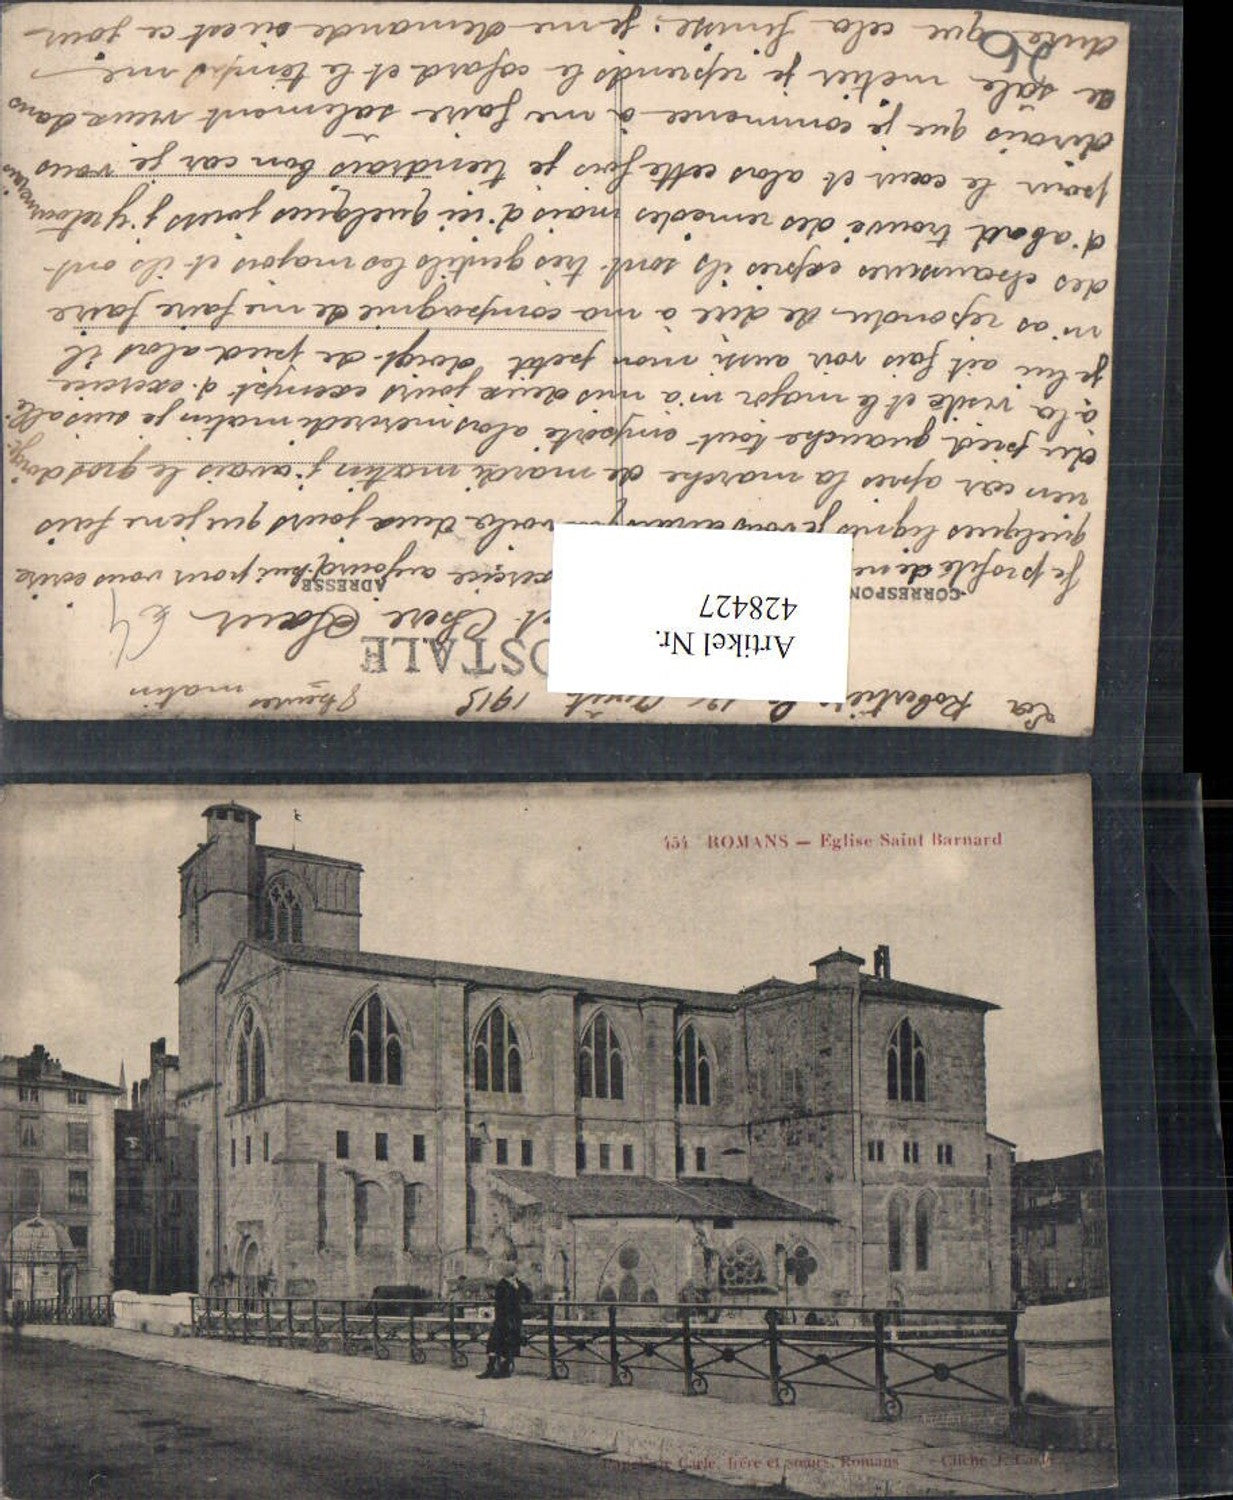 La Robertière 1915 8 heures matin
OSTALE
et Chère Sœur
CORRESPON
ADRESSE
Artikel Nr.
428427
Je profite de ne exercice aujourd'hui pour vous écrire
quelques lignes je vous dirais voila deux jours que je ne fais
rien car apres la marche de mardi matin j'avais le gros doigt
du pied gauche tout emporté alors mercredi matin je suis allé
à la visite et le major m'a mis deux jours exempt d'exercice
je lui ait fais voir aussi mon petit doigt de pied alors il
m'as repondu de dire à ma compagnie de me faire faire
des chaussures expres ils sont tres gentils les majors et ils ont
d'abord trouvé des remedes mais d'ici quelques jours j'y retournerais
pour le cœur et alors cette fois je tiendrais bon car je vous
dirais que je commence à me faire salement vieux dans
ce sale metier je reprends le cafard et le temps me
dure que cela finisse; je me demande si est ce jour
26
64
454 ROMANS — Eglise Saint Barnard
Carle, frère et sœurs, Romans
Cliché J. Carle